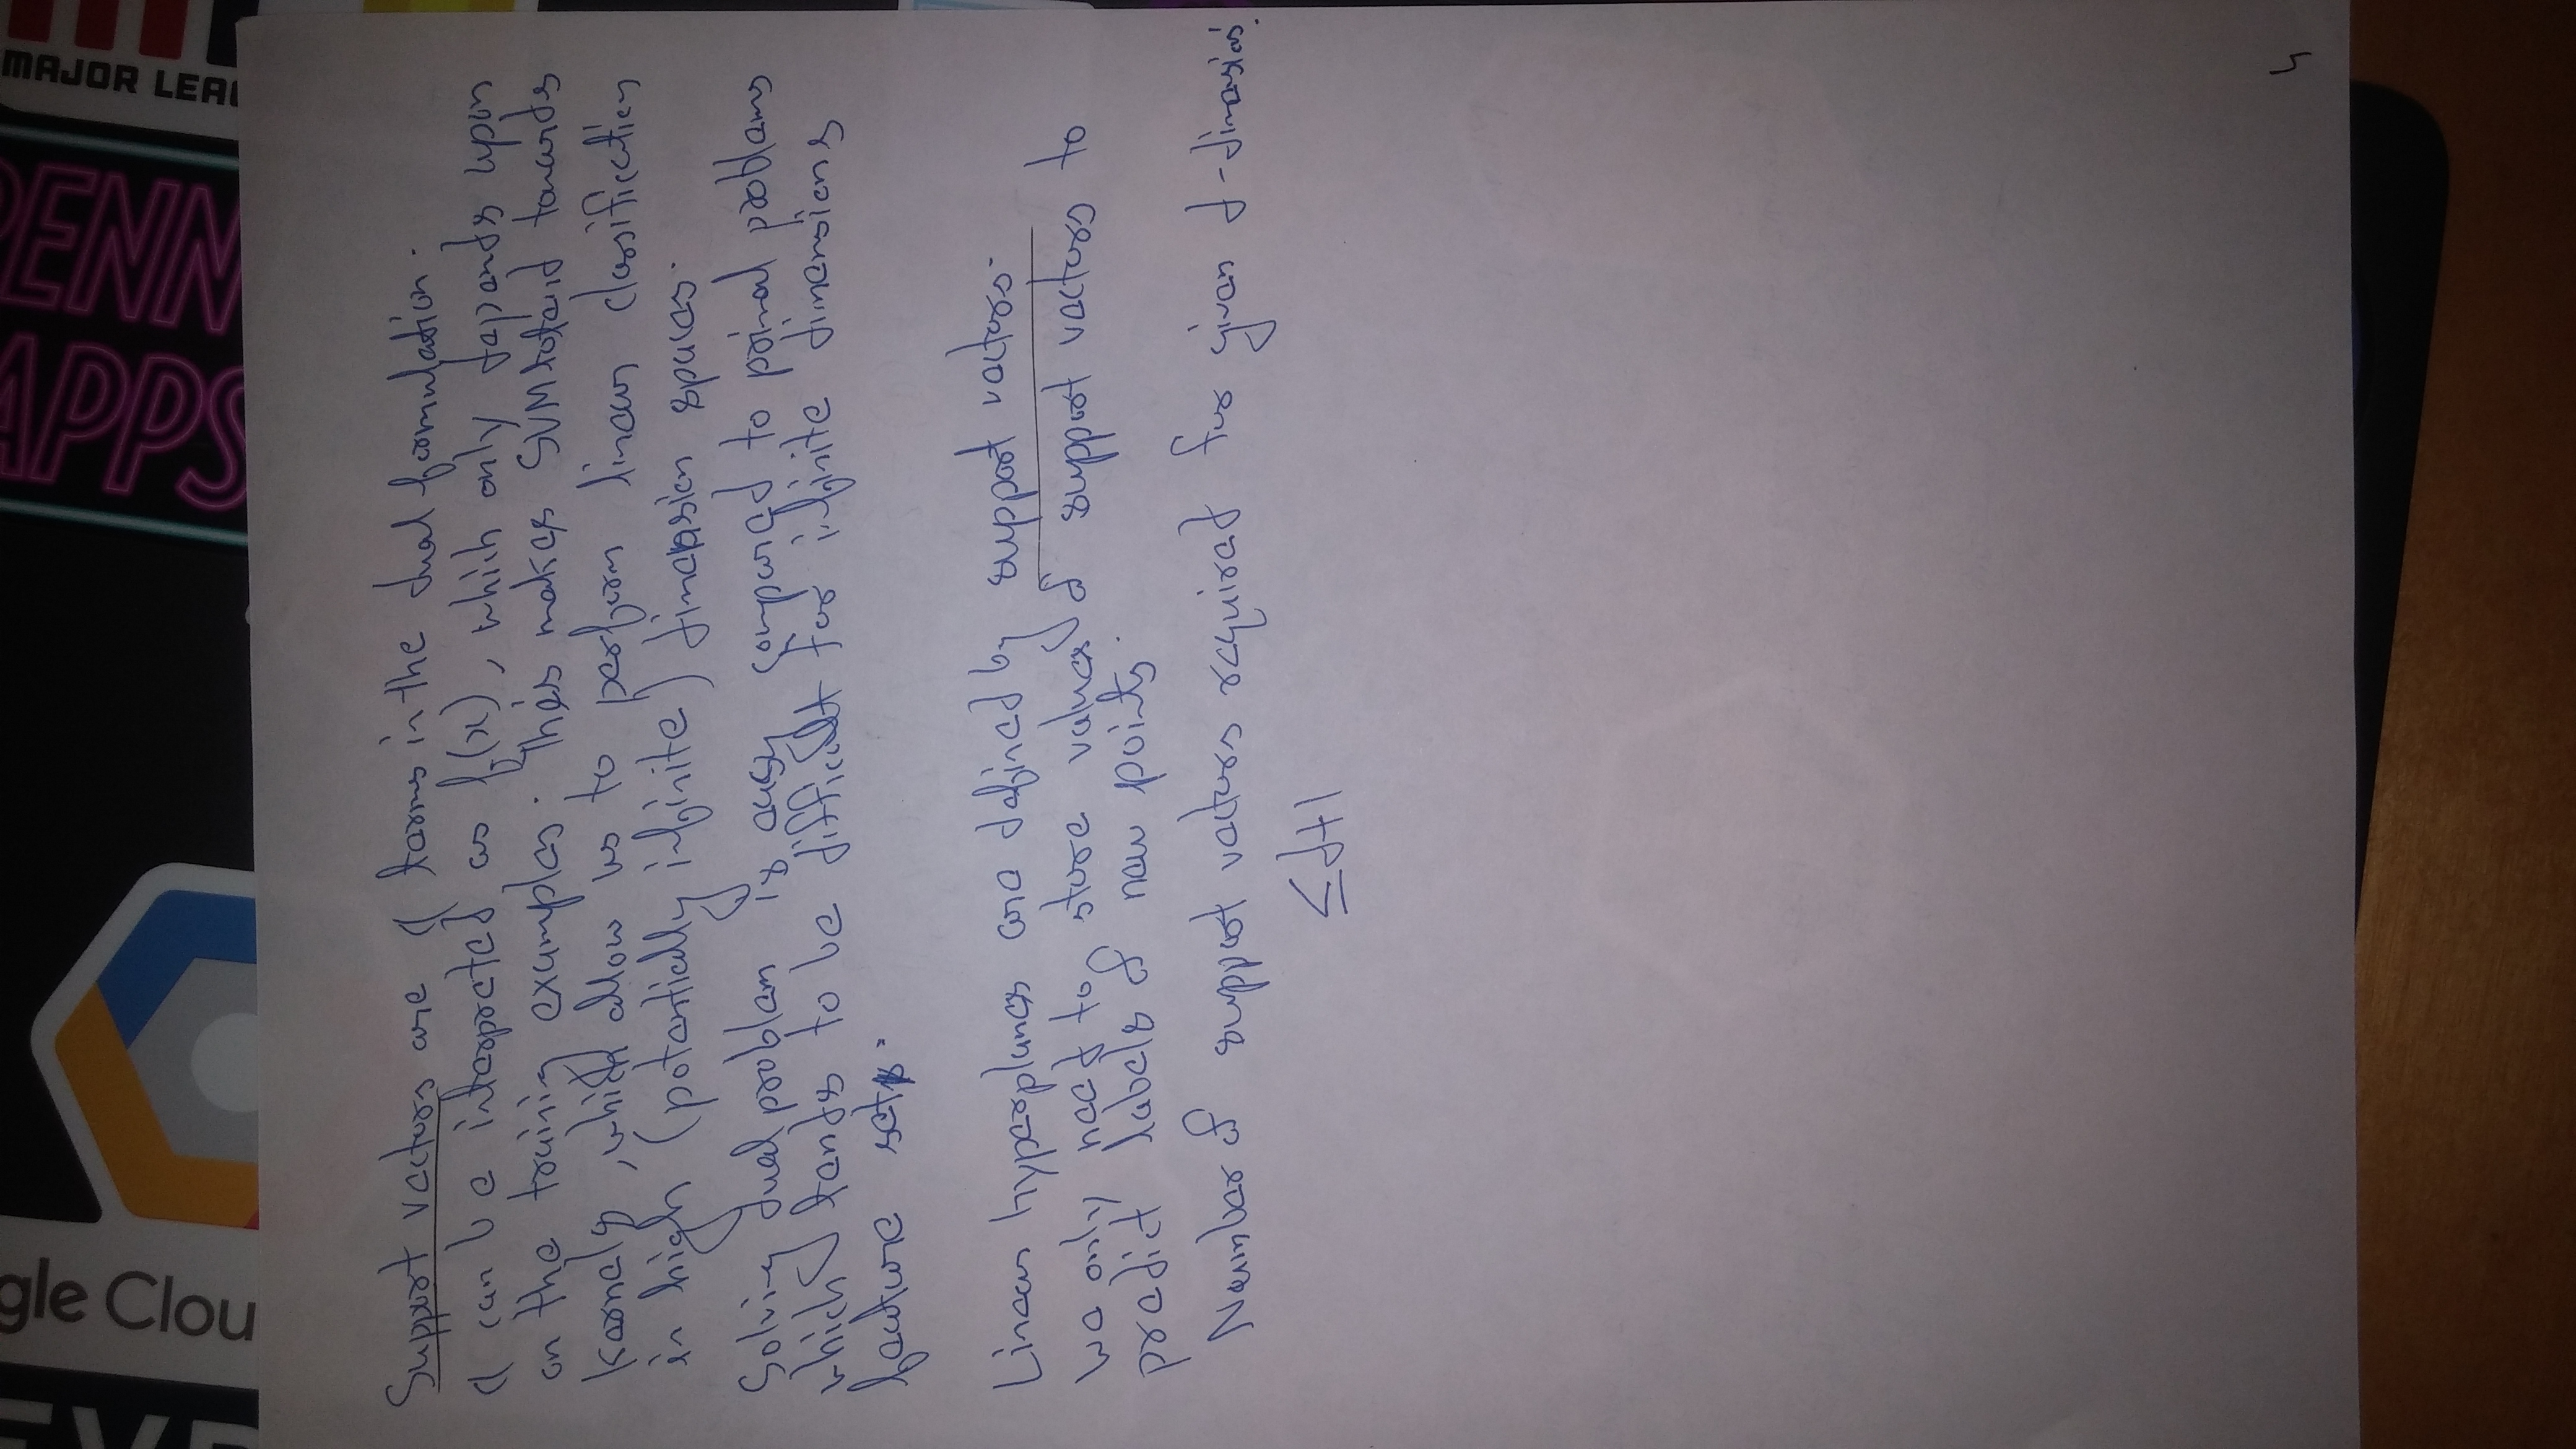 Support vectors are α terms in the dual formulation.
α can be interpreted as f(x), which only depends upon
on the training examples. This makes SVM related towards
kernels, which allow us to perform linear classification
in high (potentially infinite) dimension spaces.
Solving dual problem is easy compared to primal problems
which tends to be difficult for infinite dimensions
feature sets.
Linear hyperplanes are defined by support vectors.
We only need to store values of support vectors to
predict labels of new points.
Number of support vectors required for given d-dimension.
≤ d+1
4
EV
gle Clou
APPS
PENN
MAJOR LEA